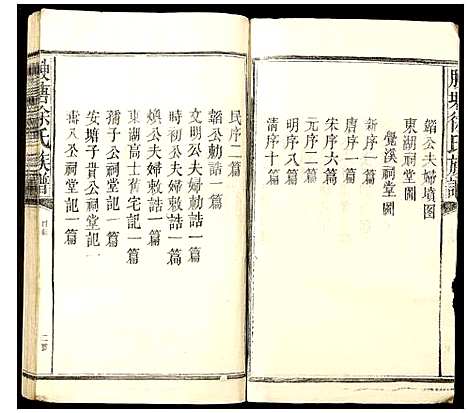 韜公夫婦墳图
東湖祠堂圖
覺溪祠堂圖
新序一篇
唐序一篇
宋序六篇
元序二篇
明序八篇
清序十篇
民序二篇
韜公勅誥一篇
文明公夫婦勅誥一篇
時初公夫婦敕誥一篇
煥公夫婦敕誥一篇
東湖高士舊宅記一篇
孺子公祠堂記一篇
安塘子貴公祠堂記一篇
公祠堂記一篇
徐氏族譜
目錄